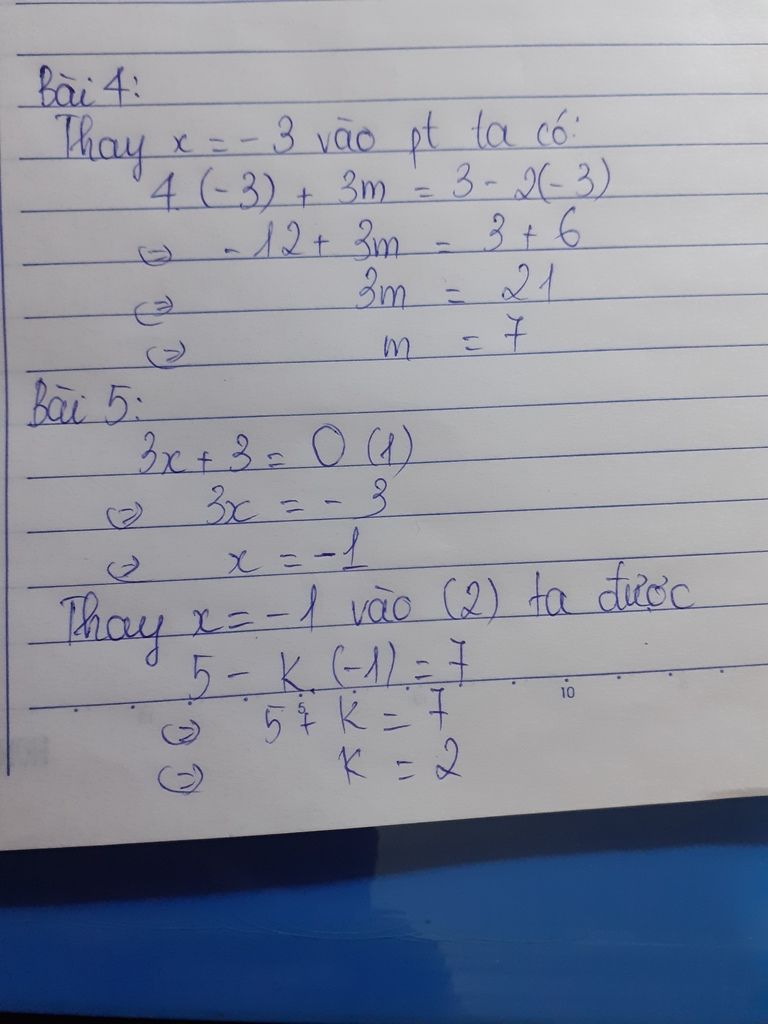 Bài 4:
Thay x = -3 vào pt ta có:
4 (-3) + 3m = 3 - 2(-3)
<=> -12 + 3m = 3 + 6
<=> 3m = 21
<=> m = 7
Bài 5:
3x + 3 = 0 (1)
<=> 3x = -3
<=> x = -1
Thay x = -1 vào (2) ta được
5 - K. (-1) = 7
5 10
<=> 5 + K = 7
<=> K = 2